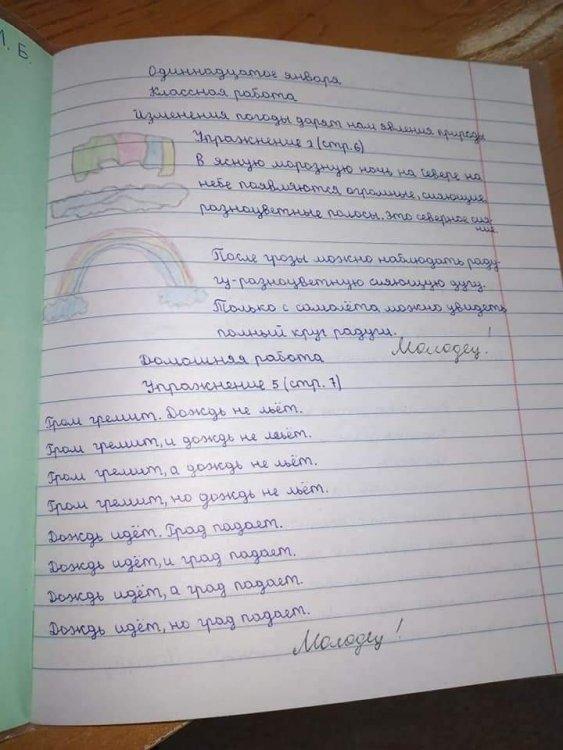 И. Б.
Одиннадцатое января
Классная работа
Изменения погоды дарят нам явления природы
Упражнение 2 (стр. 6)
В ясную морозную ночь на севере на
небе появляются огромные, сияющие
разноцветные полосы. Это северное сия-
ние.
После грозы можно наблюдать раду
гу-разноцветную сияющую дугу.
Только с самолёта можно увидеть
полный круг радуги.
Молодец!
Домашняя работа
Упражнение 5 (стр. 7)
Гром гремит. Дождь не льёт.
Гром гремит, и дождь не льёт.
Гром гремит, а дождь не льёт.
Гром гремит, но дождь не льёт.
Дождь идёт. Град падает.
Дождь идёт, и град падает.
Дождь идёт, а град падает.
Дождь идёт, но град падает.
Молодец!